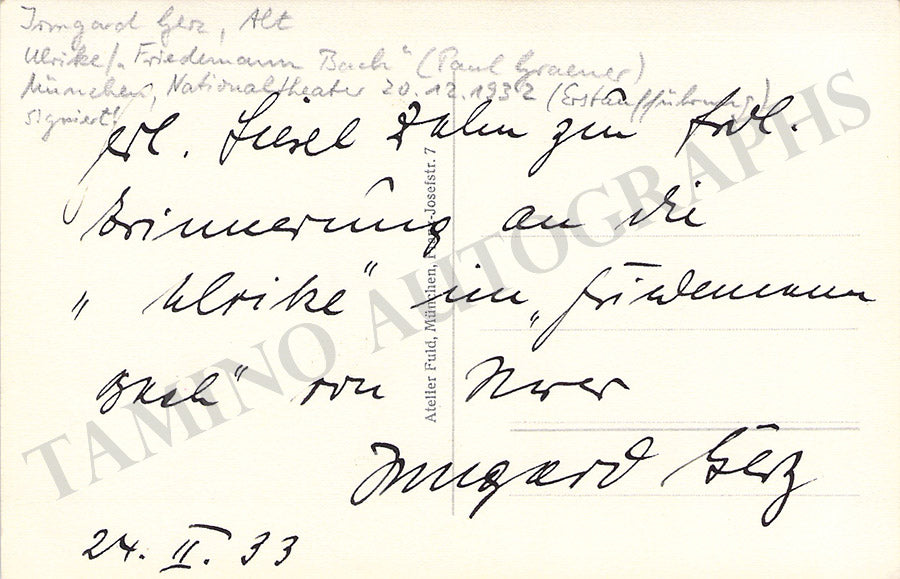 Irmgard Gerz, Alt
Ulrike/„Friedemann Bach“ (Paul Graener)
München, Nationaltheater 20.12.1932 (Erstaufführung)
signiert!
Frl. Liesel Dahn zur frdl.
Erinnerung an die
„Ulrike“ im „Friedemann
Bach“ von Ihrer
Irmgard Gerz
24. II. 33
Atelier Fuld, München, Franz-Josefstr. 7
TAMINO AUTOGRAPHS